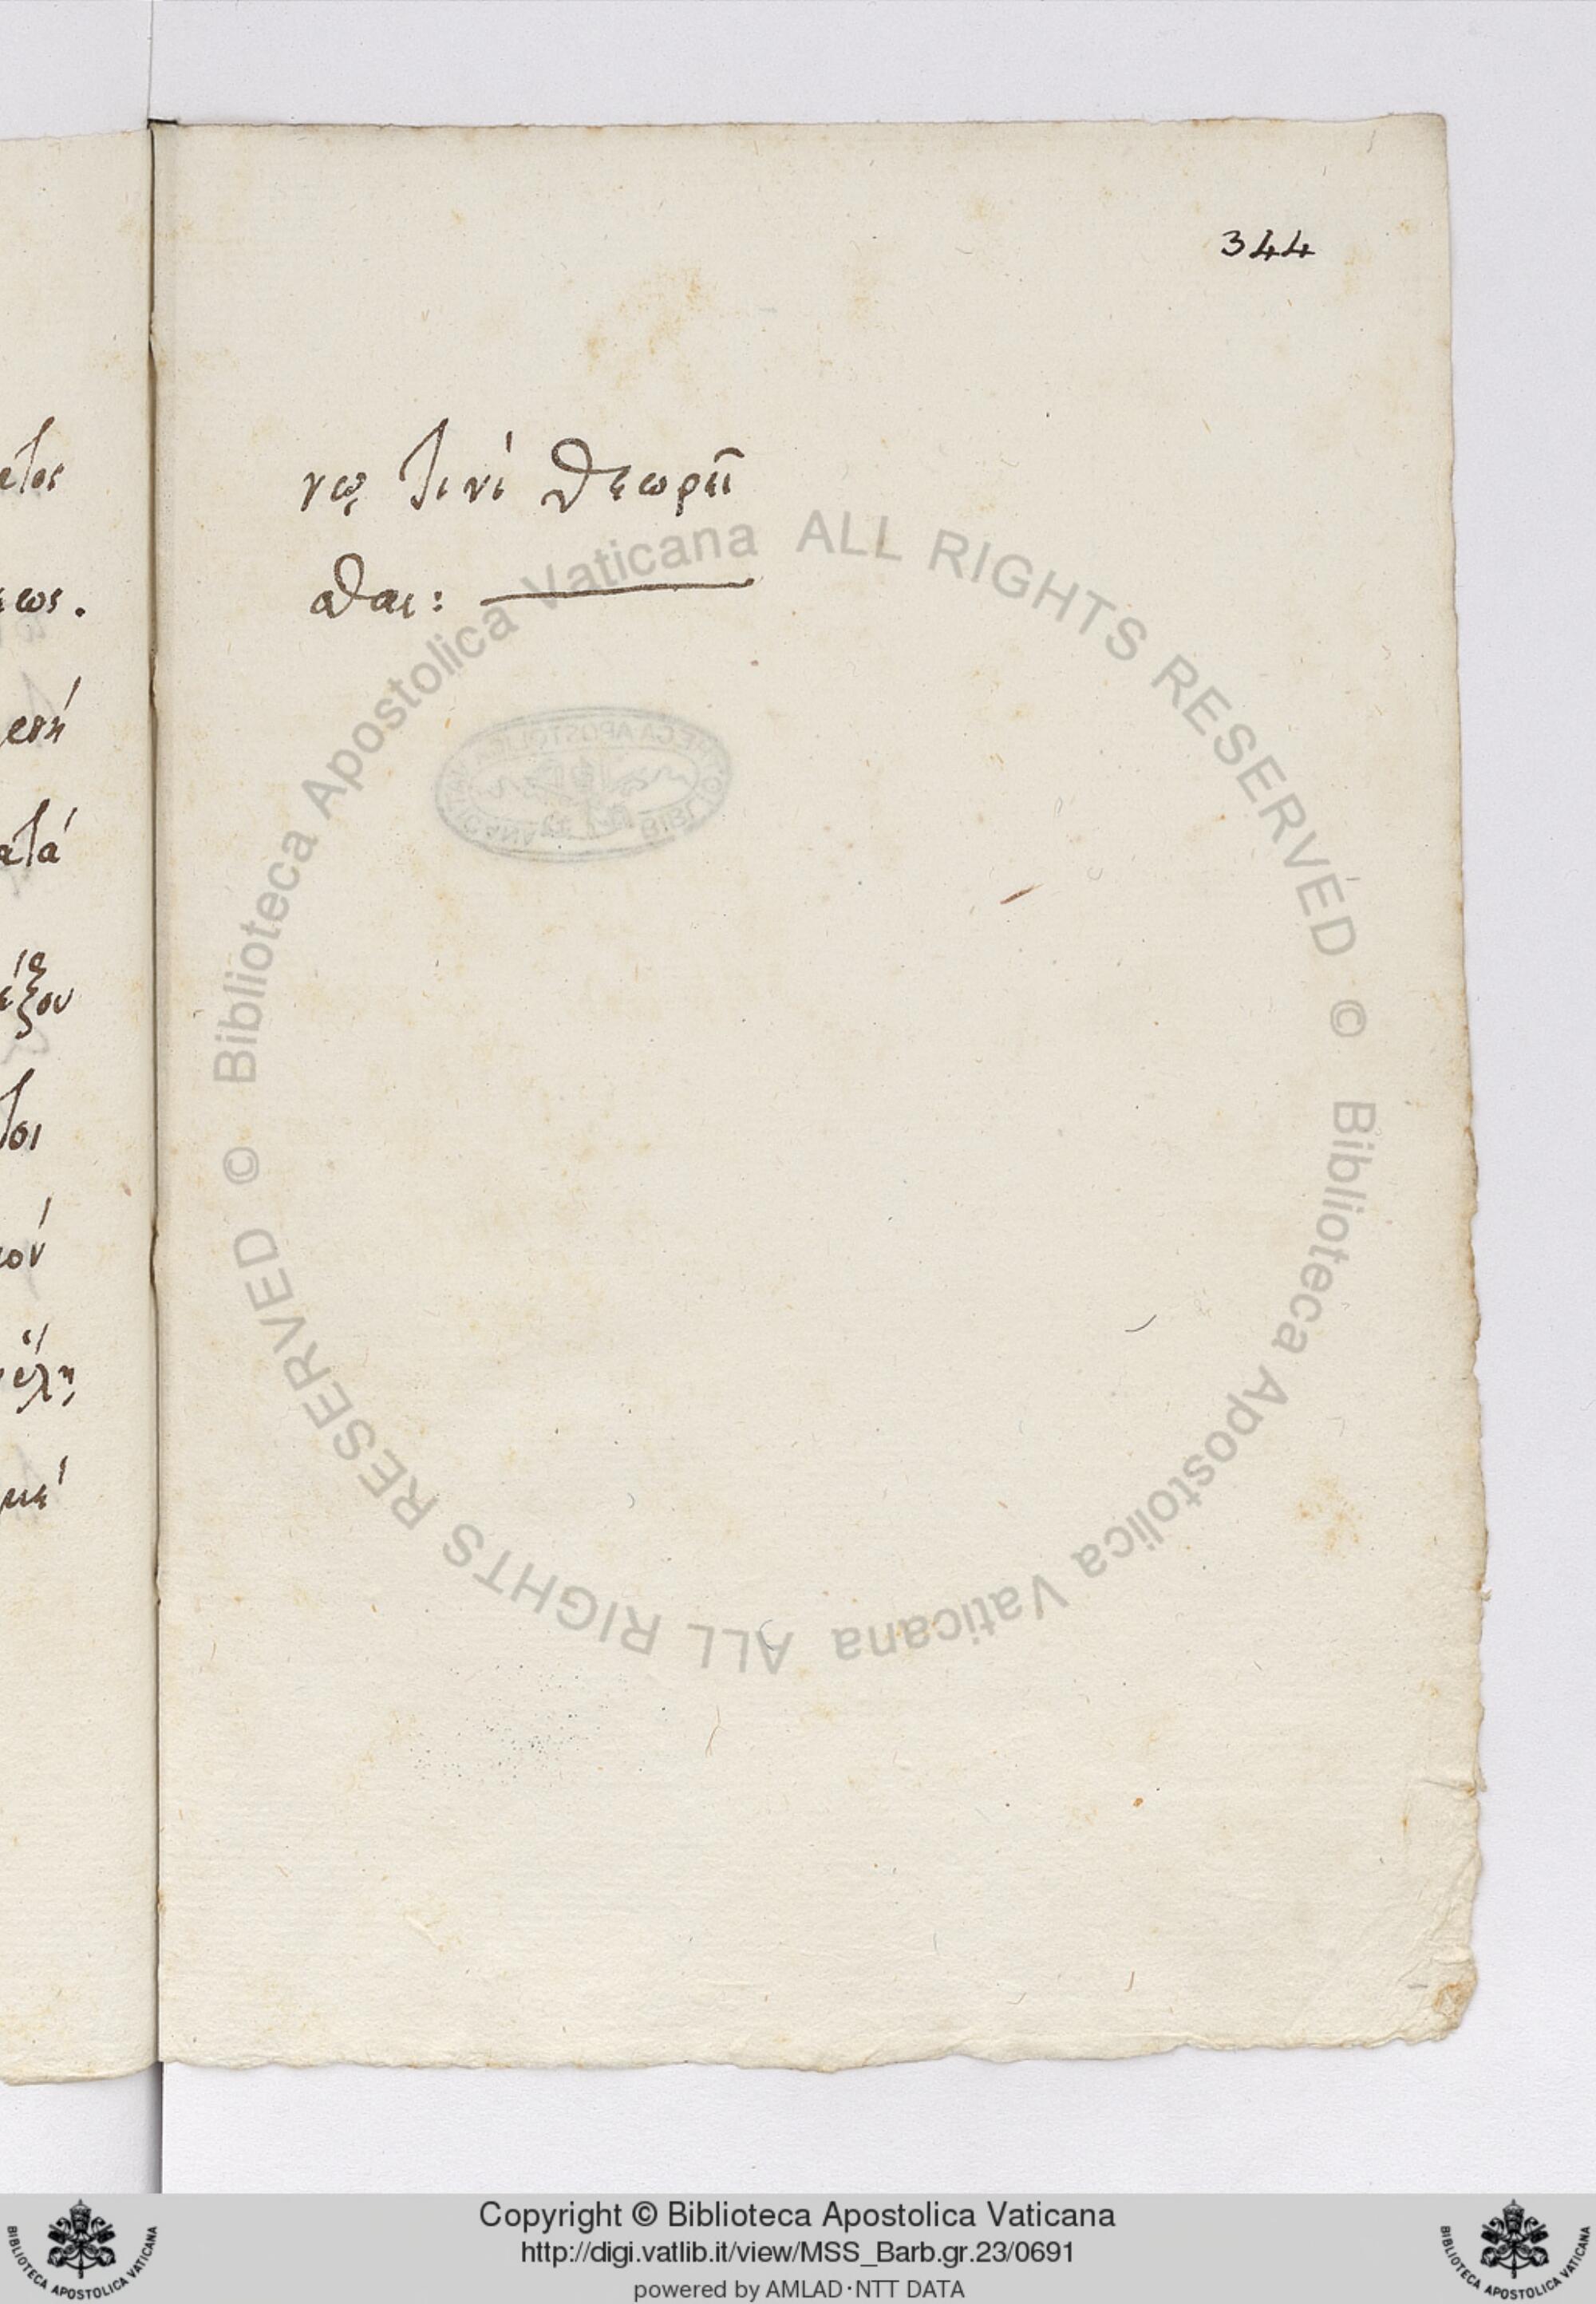 344
νῳ τινὶ θεωρεῖ
σθαι:
ετος
εως.
ατά
έξου
τοι
ον
Biblioteca Apostolica Vaticana ALL RIGHTS RESERVED ©
Biblioteca Apostolica Vaticana ALL RIGHTS RESERVED ©
Copyright © Biblioteca Apostolica Vaticana
http://digi.vatlib.it/view/MSS_Barb.gr.23/0691
powered by AMLAD·NTT DATA
BIBLIOTECA APOSTOLICA VATICANA
BIBLIOTECA APOSTOLICA VATICANA